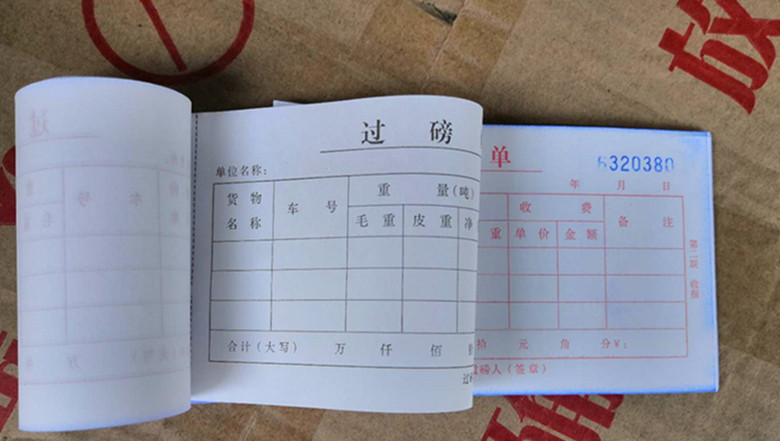 过磅
单位名称:
货物名称 车号 重量(吨)
毛重 皮重 净
合计(大写) 万 仟 佰
过
单 6320380
年 月 日
收费 备注
重 单价 金额
第二联 收据
拾 元 角 分¥:
过磅人(签章)
过
号
万
放